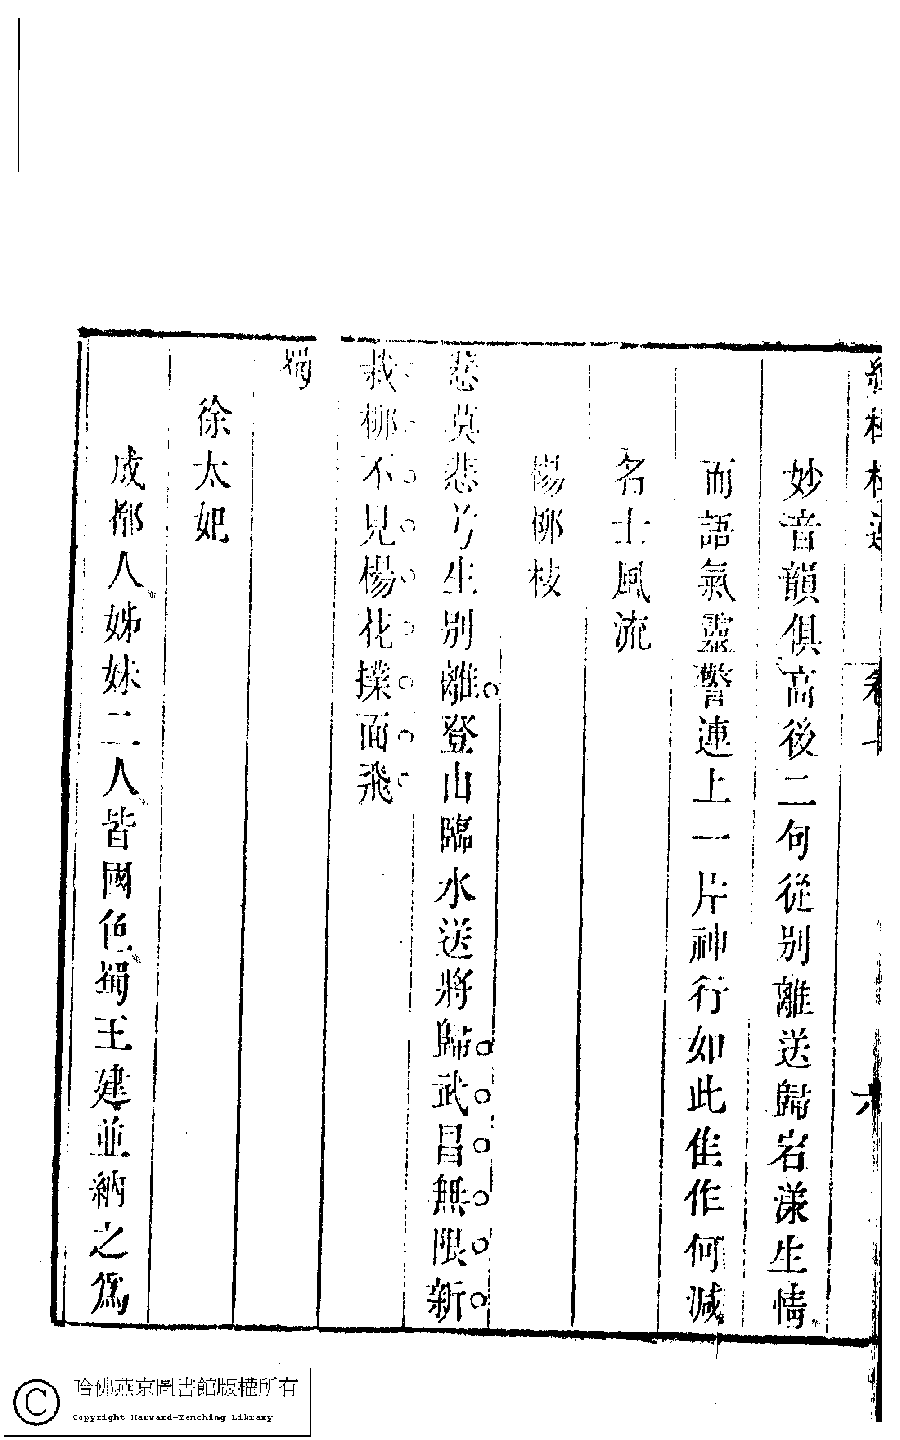 卷十 六
妙音韻俱高後二句從別離送歸宕漾生情
而語氣靈警連上一片神行如此佳作何減
名士風流
楊柳枝
悲莫悲兮生別離登山臨水送將歸武昌無限新
栽柳不見楊花撲面飛
蜀
徐太妃
成都人姊妹二人皆國色蜀王建並納之爲
哈佛燕京圖書館版權所有
Copyright Harvard-Yenching Library